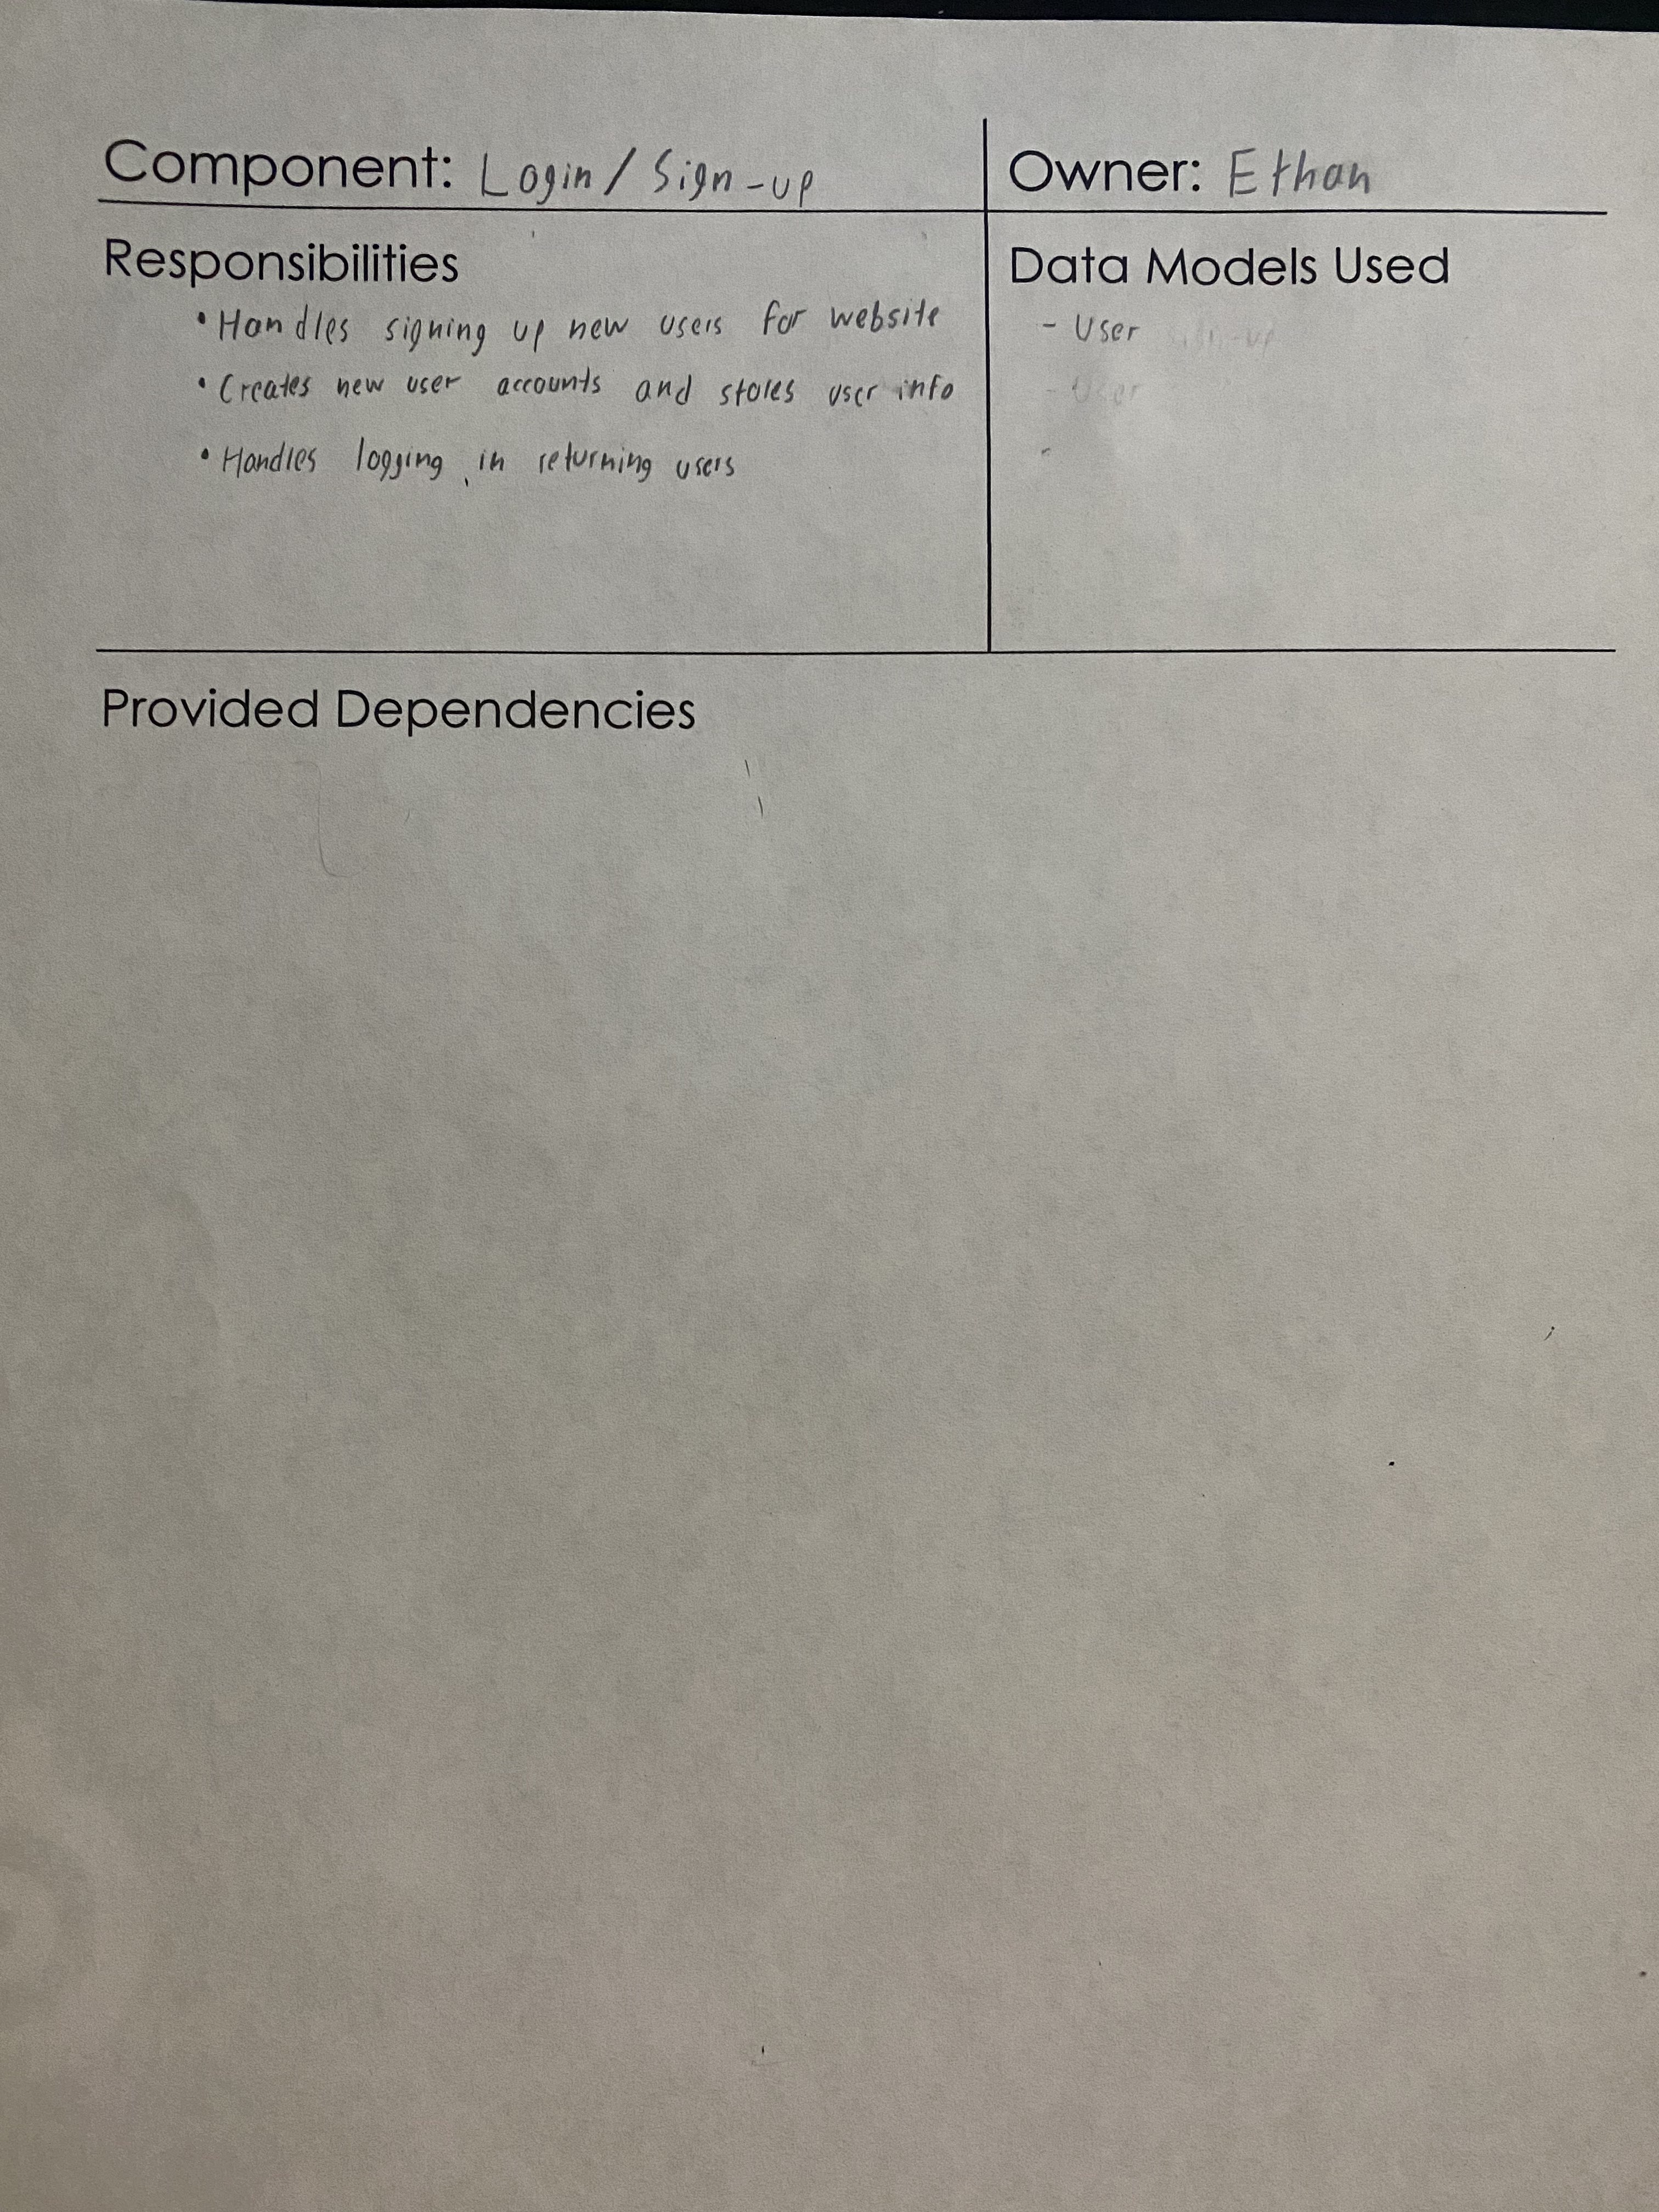 Component: Login / Sign-up
Owner: Ethan
Responsibilities
• Handles signing up new users for website
• Creates new user accounts and stores user info
• Handles logging in returning users
Data Models Used
- User
- User
Provided Dependencies